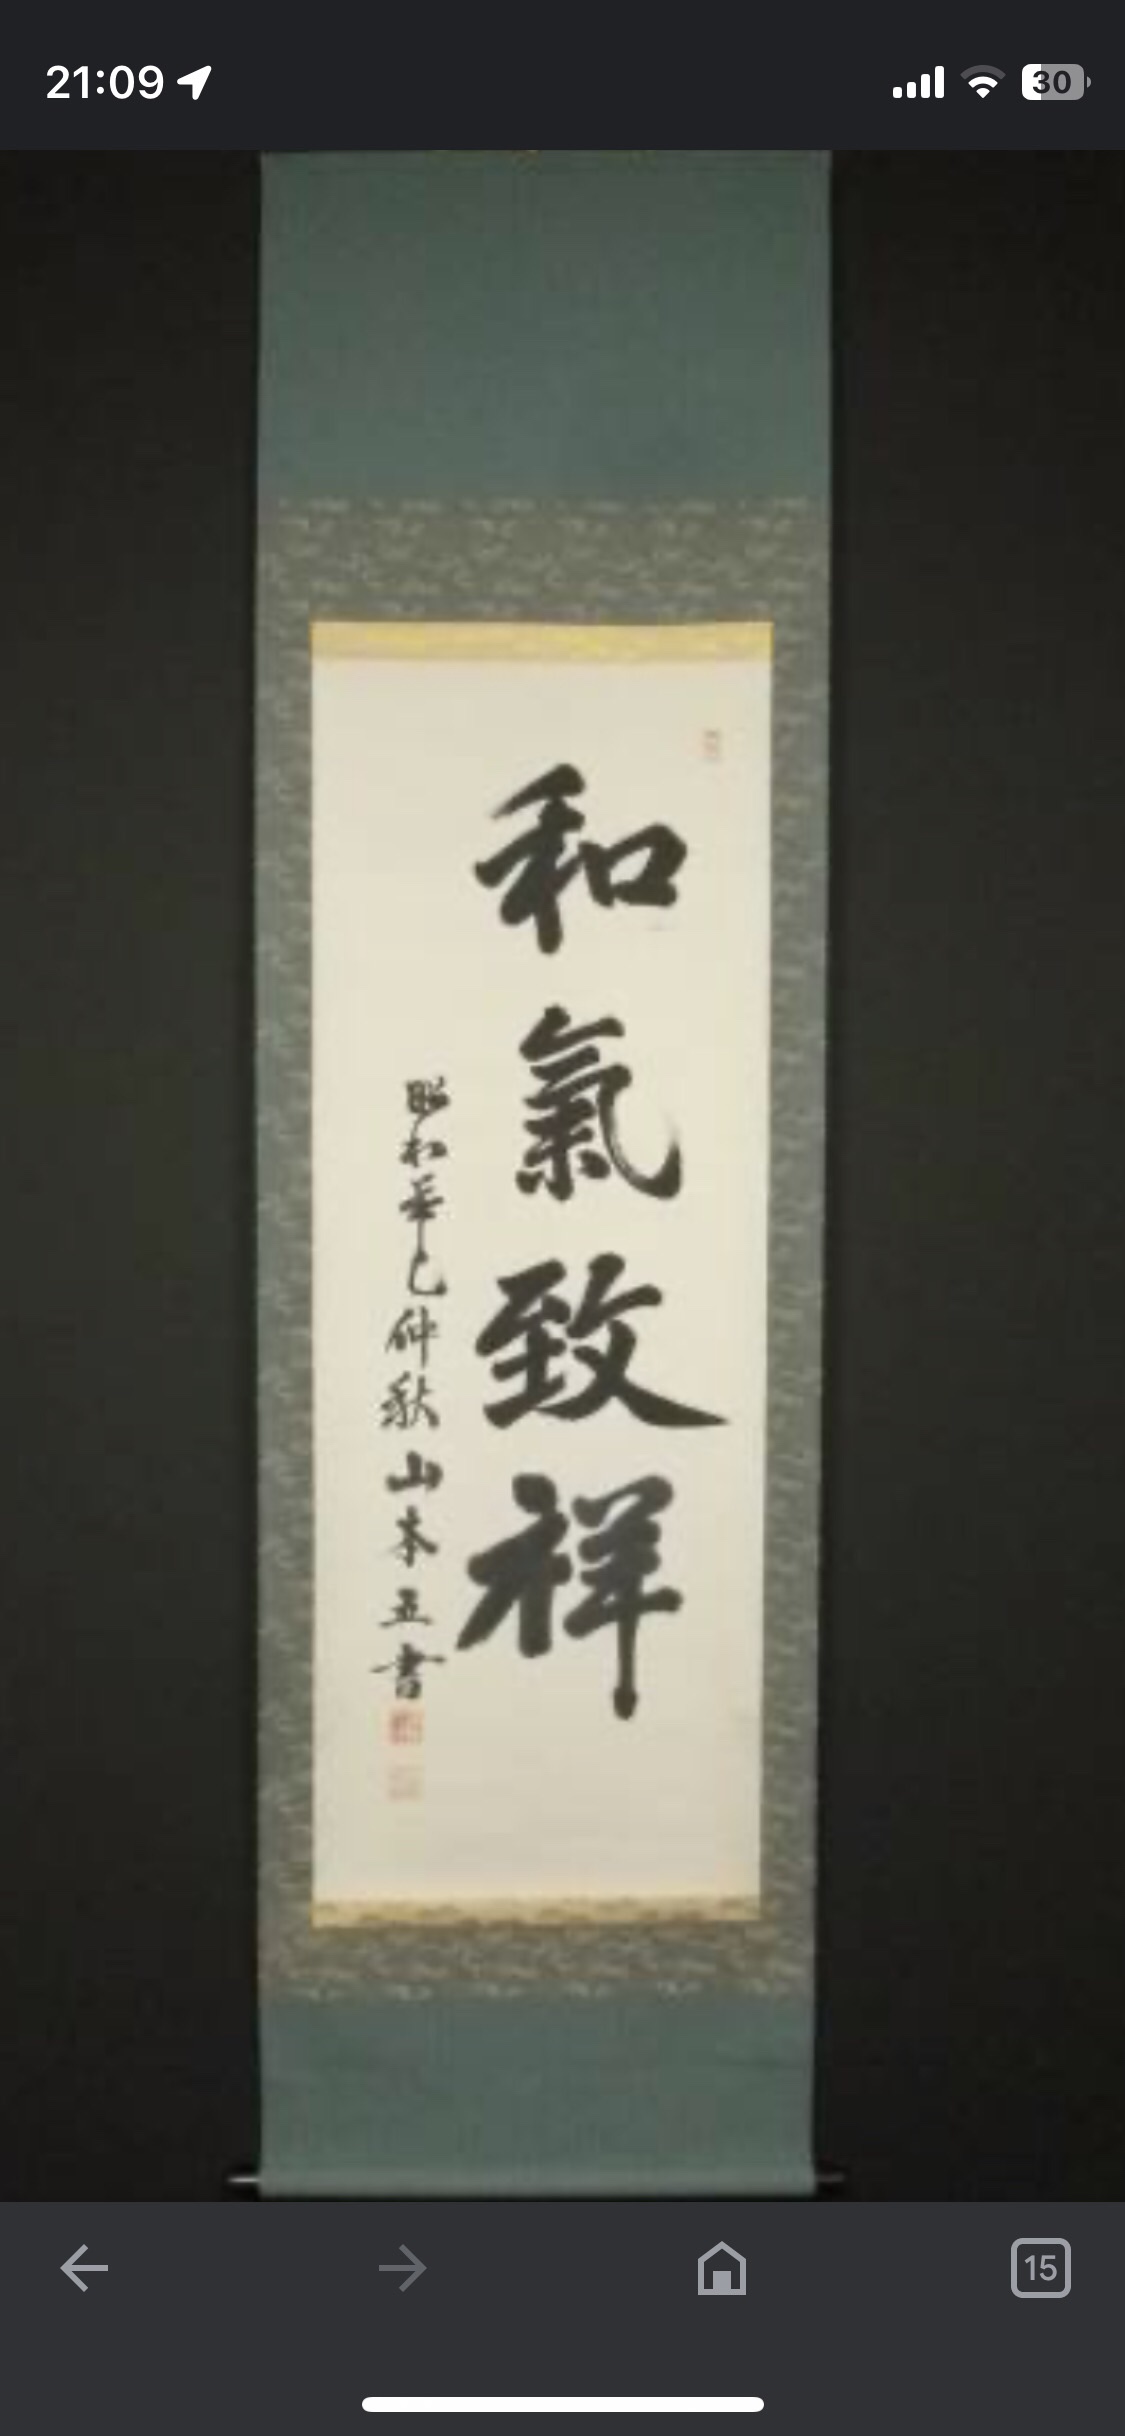 21:09
30
和氣致祥
昭和辛巳仲秋山本五書
15